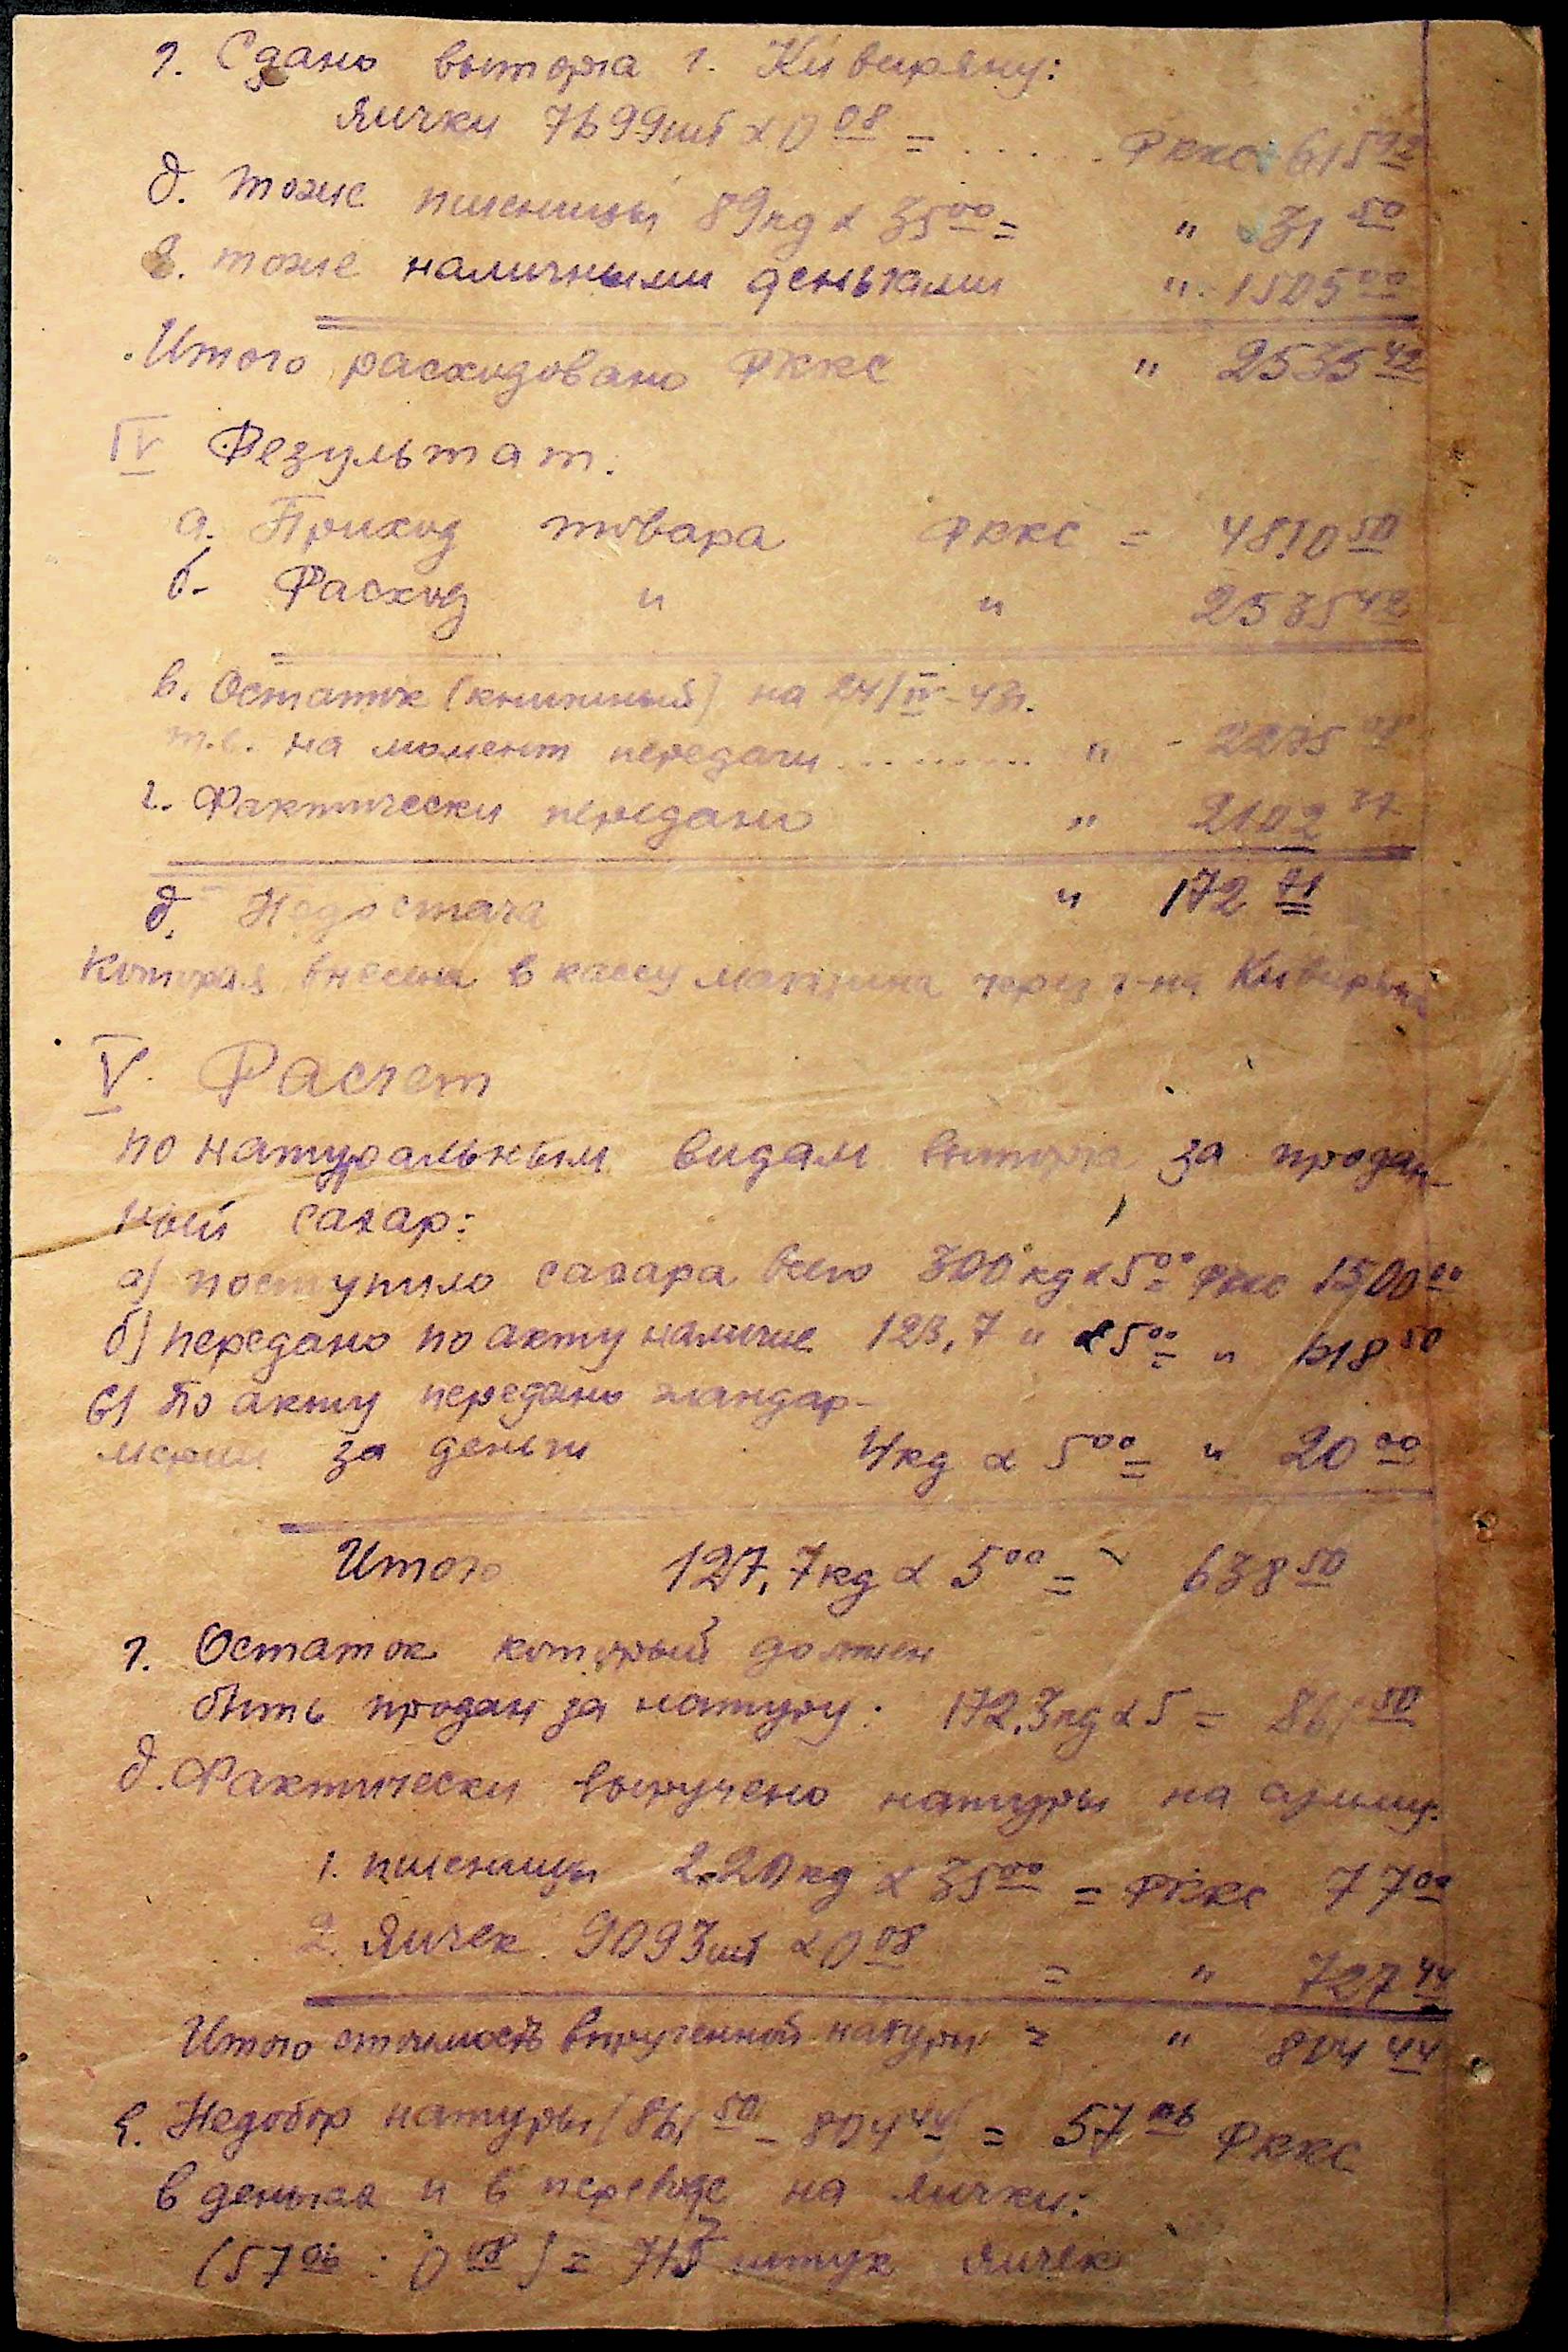 г. Сдано выторга г. Кивиряну:
Яички 7699шт α 0 08 = ..... РККС 615 92
д. тоже пшеницы 89кg α 35 00 = " 31 50
е. тоже наличными деньгами " 1505 00
Итого расходовано РККС " 2535 42
IV Результат.
а. Приход товара РККС = 4810 50
б. Расход " " 2535 42
в. Остаток (книжный) на 24/IV-43г.
т.е. на момент передачи .......... " - 2275 08
г. Фактически передано " 2102 37
д. Недостача " 172 71
Которая внесена в кассу магазина через г-на Кивиряна
V. Расчет
по натуральным видам выторга за продан-
ный сахар:
а) поступило сахара всего 300 кg α 5 00 = РККС 1500 00
б) передано по акту наличие 123,7 " α 5 00 = " 618 50
в) По акту передано жандар-
мерии за деньги 4кg α 5 00 = " 20 00
Итого 127,7кg α 5 00 = 638 50
г. Остаток который должен
быть продан за натуру: 172.3кg α 5 = 861 50
д. Фактически выручено натуры на сумму:
1. пшеницы 220кg α 35 00 = РККС 77 00
2. Яичек 9093шт α 0 08 = " 727 44
Итого стоимость вырученной натуры = " 804 44
е. Недобор натуры (861 50 - 804 44) = 57 06 РККС
в деньгах и в переводе на яички:
(57 06 : 0 08) = 713 штук яичек